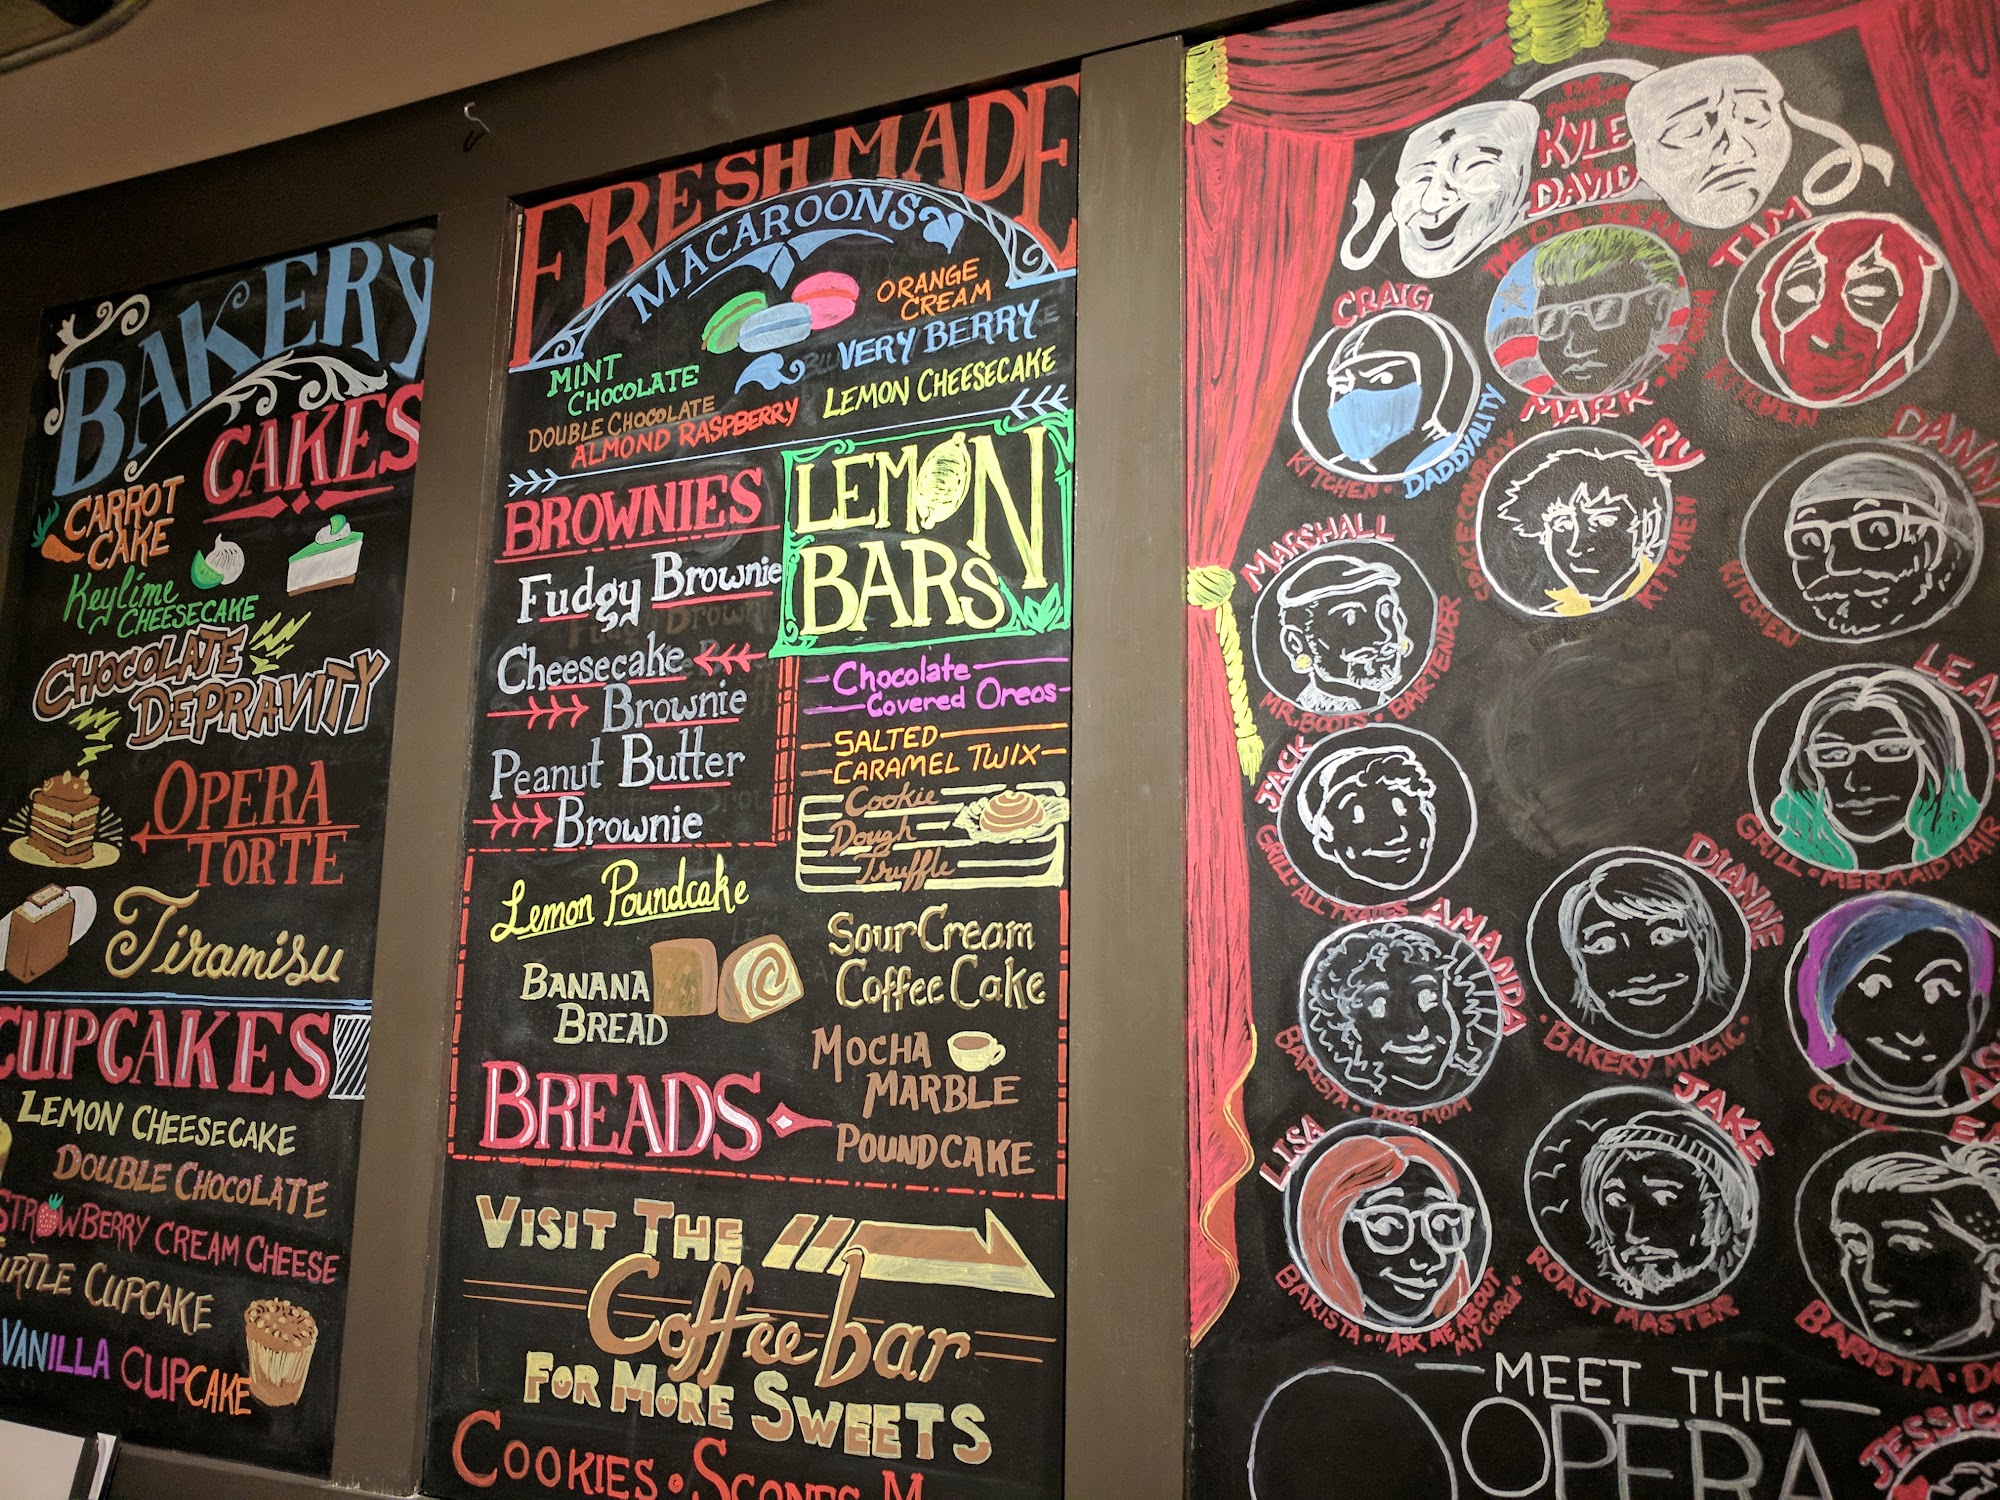 BAKERY
CAKES
CARROT
CAKE
Keylime
CHEESECAKE
CHOCOLATE
DEPRAVITY
OPERA
TORTE
Tiramisu
CUPCAKES
LEMON CHEESECAKE
DOUBLE CHOCOLATE
STRAWBERRY CREAM CHEESE
CUPCAKE
VANILLA CUPCAKE
FRESH MADE
MACAROONS
ORANGE
CREAM
VERY BERRY
MINT
CHOCOLATE
LEMON CHEESECAKE
DOUBLE CHOCOLATE
ALMOND RASPBERRY
BROWNIES
Fudgy Brownie
Cheesecake
Brownie
Peanut Butter
Brownie
LEMON
BARS
Chocolate
Covered Oreos
SALTED
CARAMEL TWIX
Cookie
Dough
Truffle
Lemon Poundcake
BANANA
BREAD
SOUR CREAM
COFFEE CAKE
MOCHA
MARBLE
POUNDCAKE
BREADS
VISIT THE
Coffee bar
FOR MORE SWEETS
COOKIES • SCONES
KYLE
DAVID
CRAIG
KITCHEN •
DADDYALITY
MARK
KITCHEN
TIM
KITCHEN
RY
SPACE COWBOY
KITCHEN
DANN
KITCHEN
MARSHALL
MR. BOOTS • BARTENDER
LEAN
GRILL • MERMAID HAIR
JACK
GRILL • ALL TRADES
DIANNE
• BAKERY MAGIC •
AMANDA
BARISTA • DOG MOM
GRILL
LISA
BARISTA • "ASK ME ABOUT
MY CORGI"
JAKE
ROAST MASTER
BARISTA •
MEET THE
OPERA
JESSICA